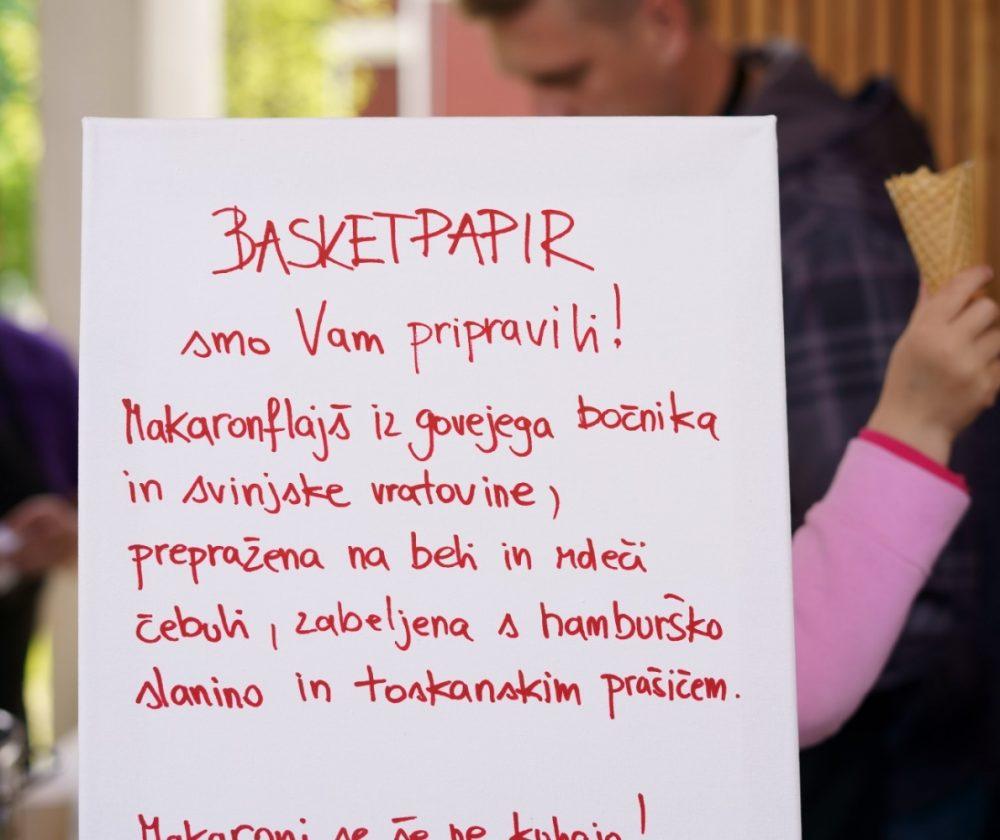 BASKETPAPIR
smo Vam pripravili!
Makaronflajš iz govejega bočnika
in svinjske vratovine,
prepražena na beli in rdeči
čebuli, zabeljena s hamburško
slanino in toskanskim prašičem.
Makaroni se še ne kuhajo!